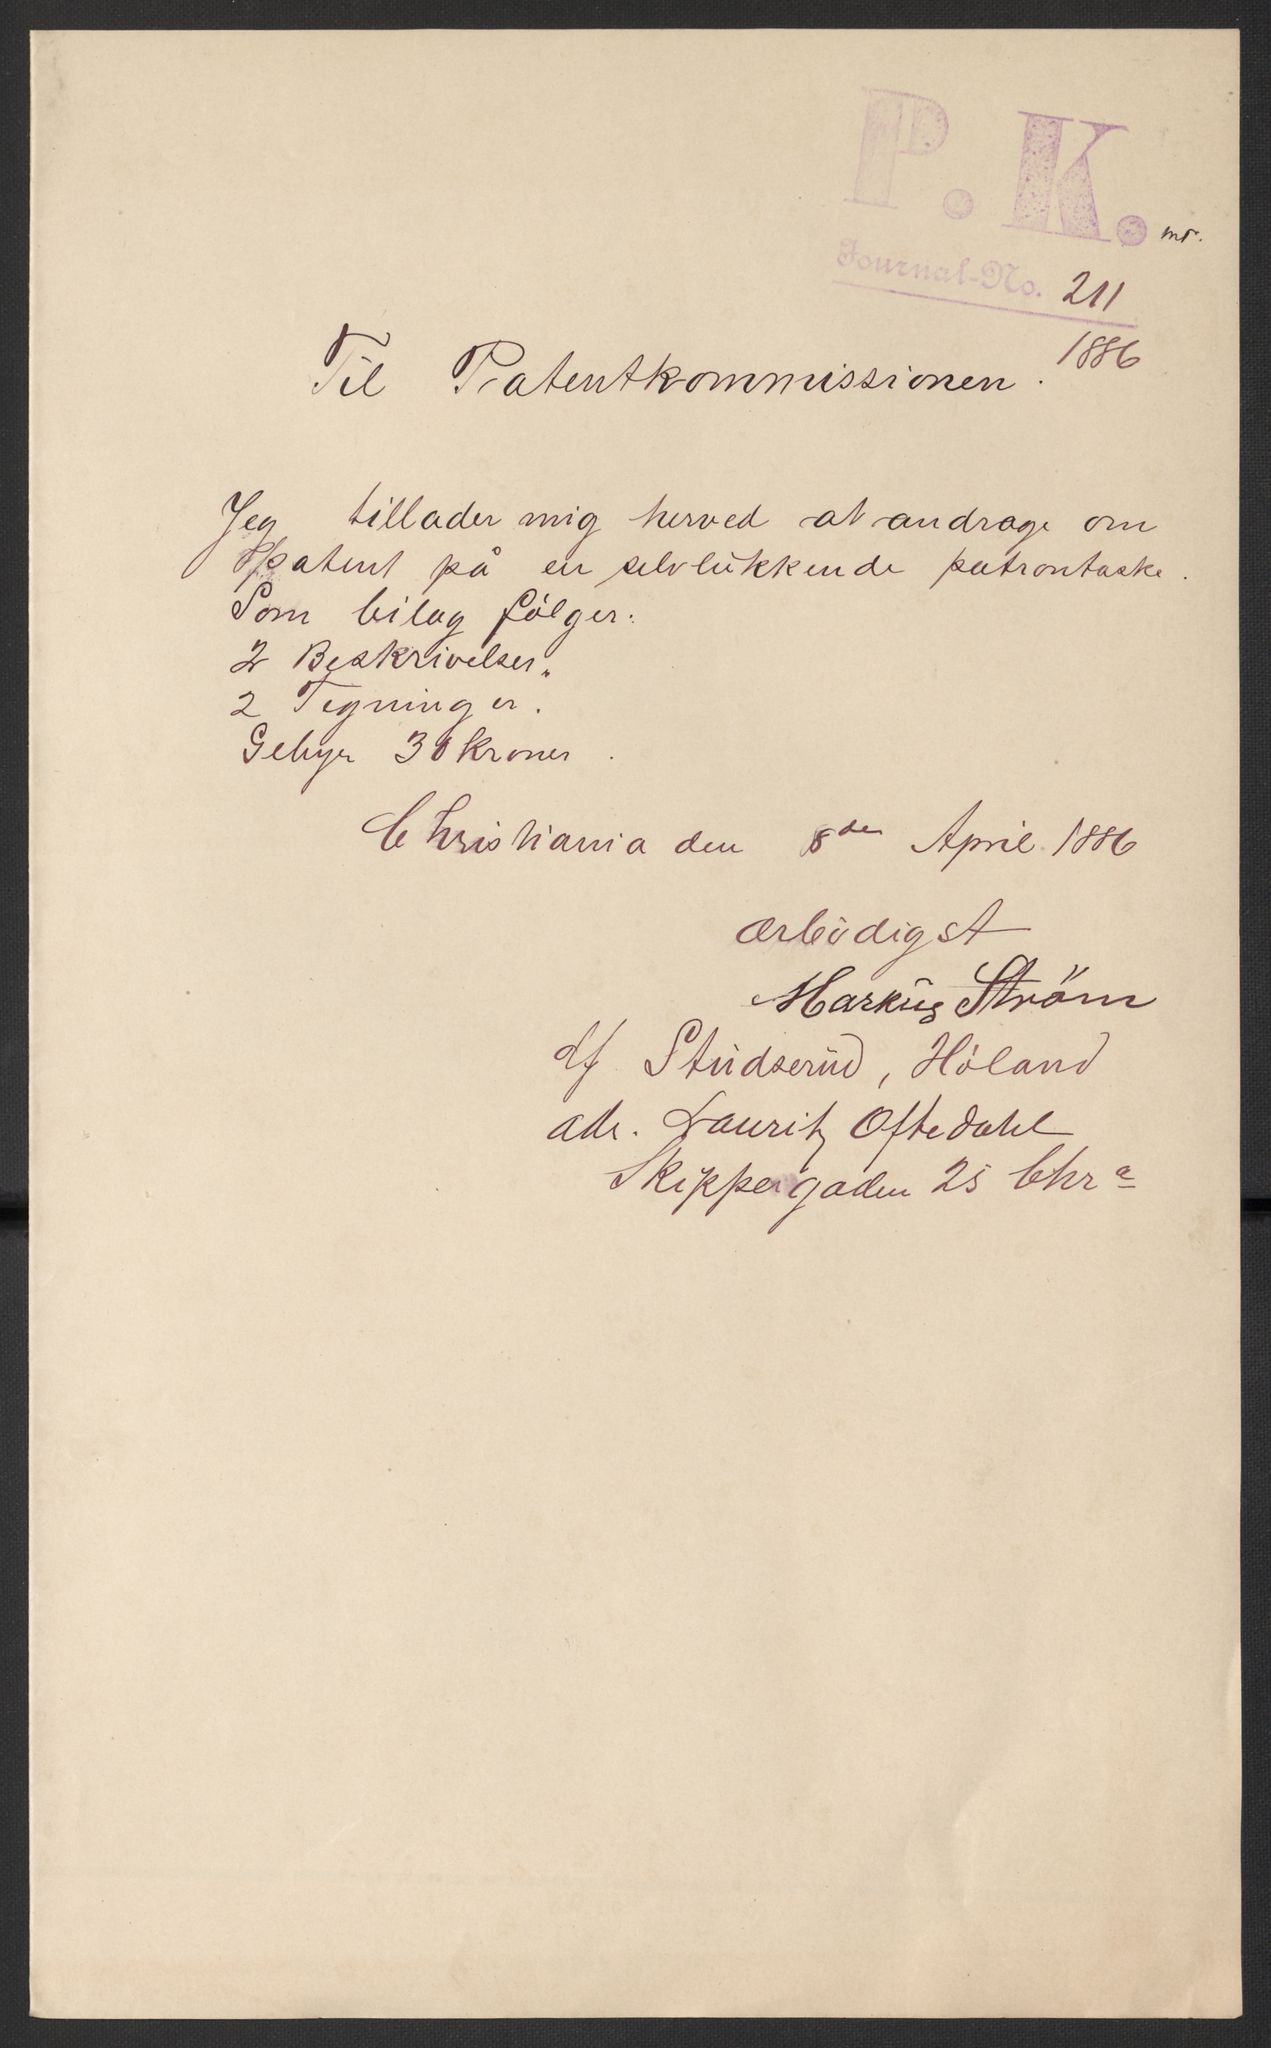 P. K.
mr.
Journal-No. 211
1886
Til Patentkommissionen.
Jeg tillader mig herved at andrage om
patent på en selvlukkende patrontaske.
Som bilag følger:
2 Beskrivelser.
2 Tegninger.
Gebyr 30 kroner.
Christiania den 8de April 1886
ærbödigst
Markus Ström
Studserud, Höland
adr. Lauritz Oftedahl
Skippergaden 25 Chr a